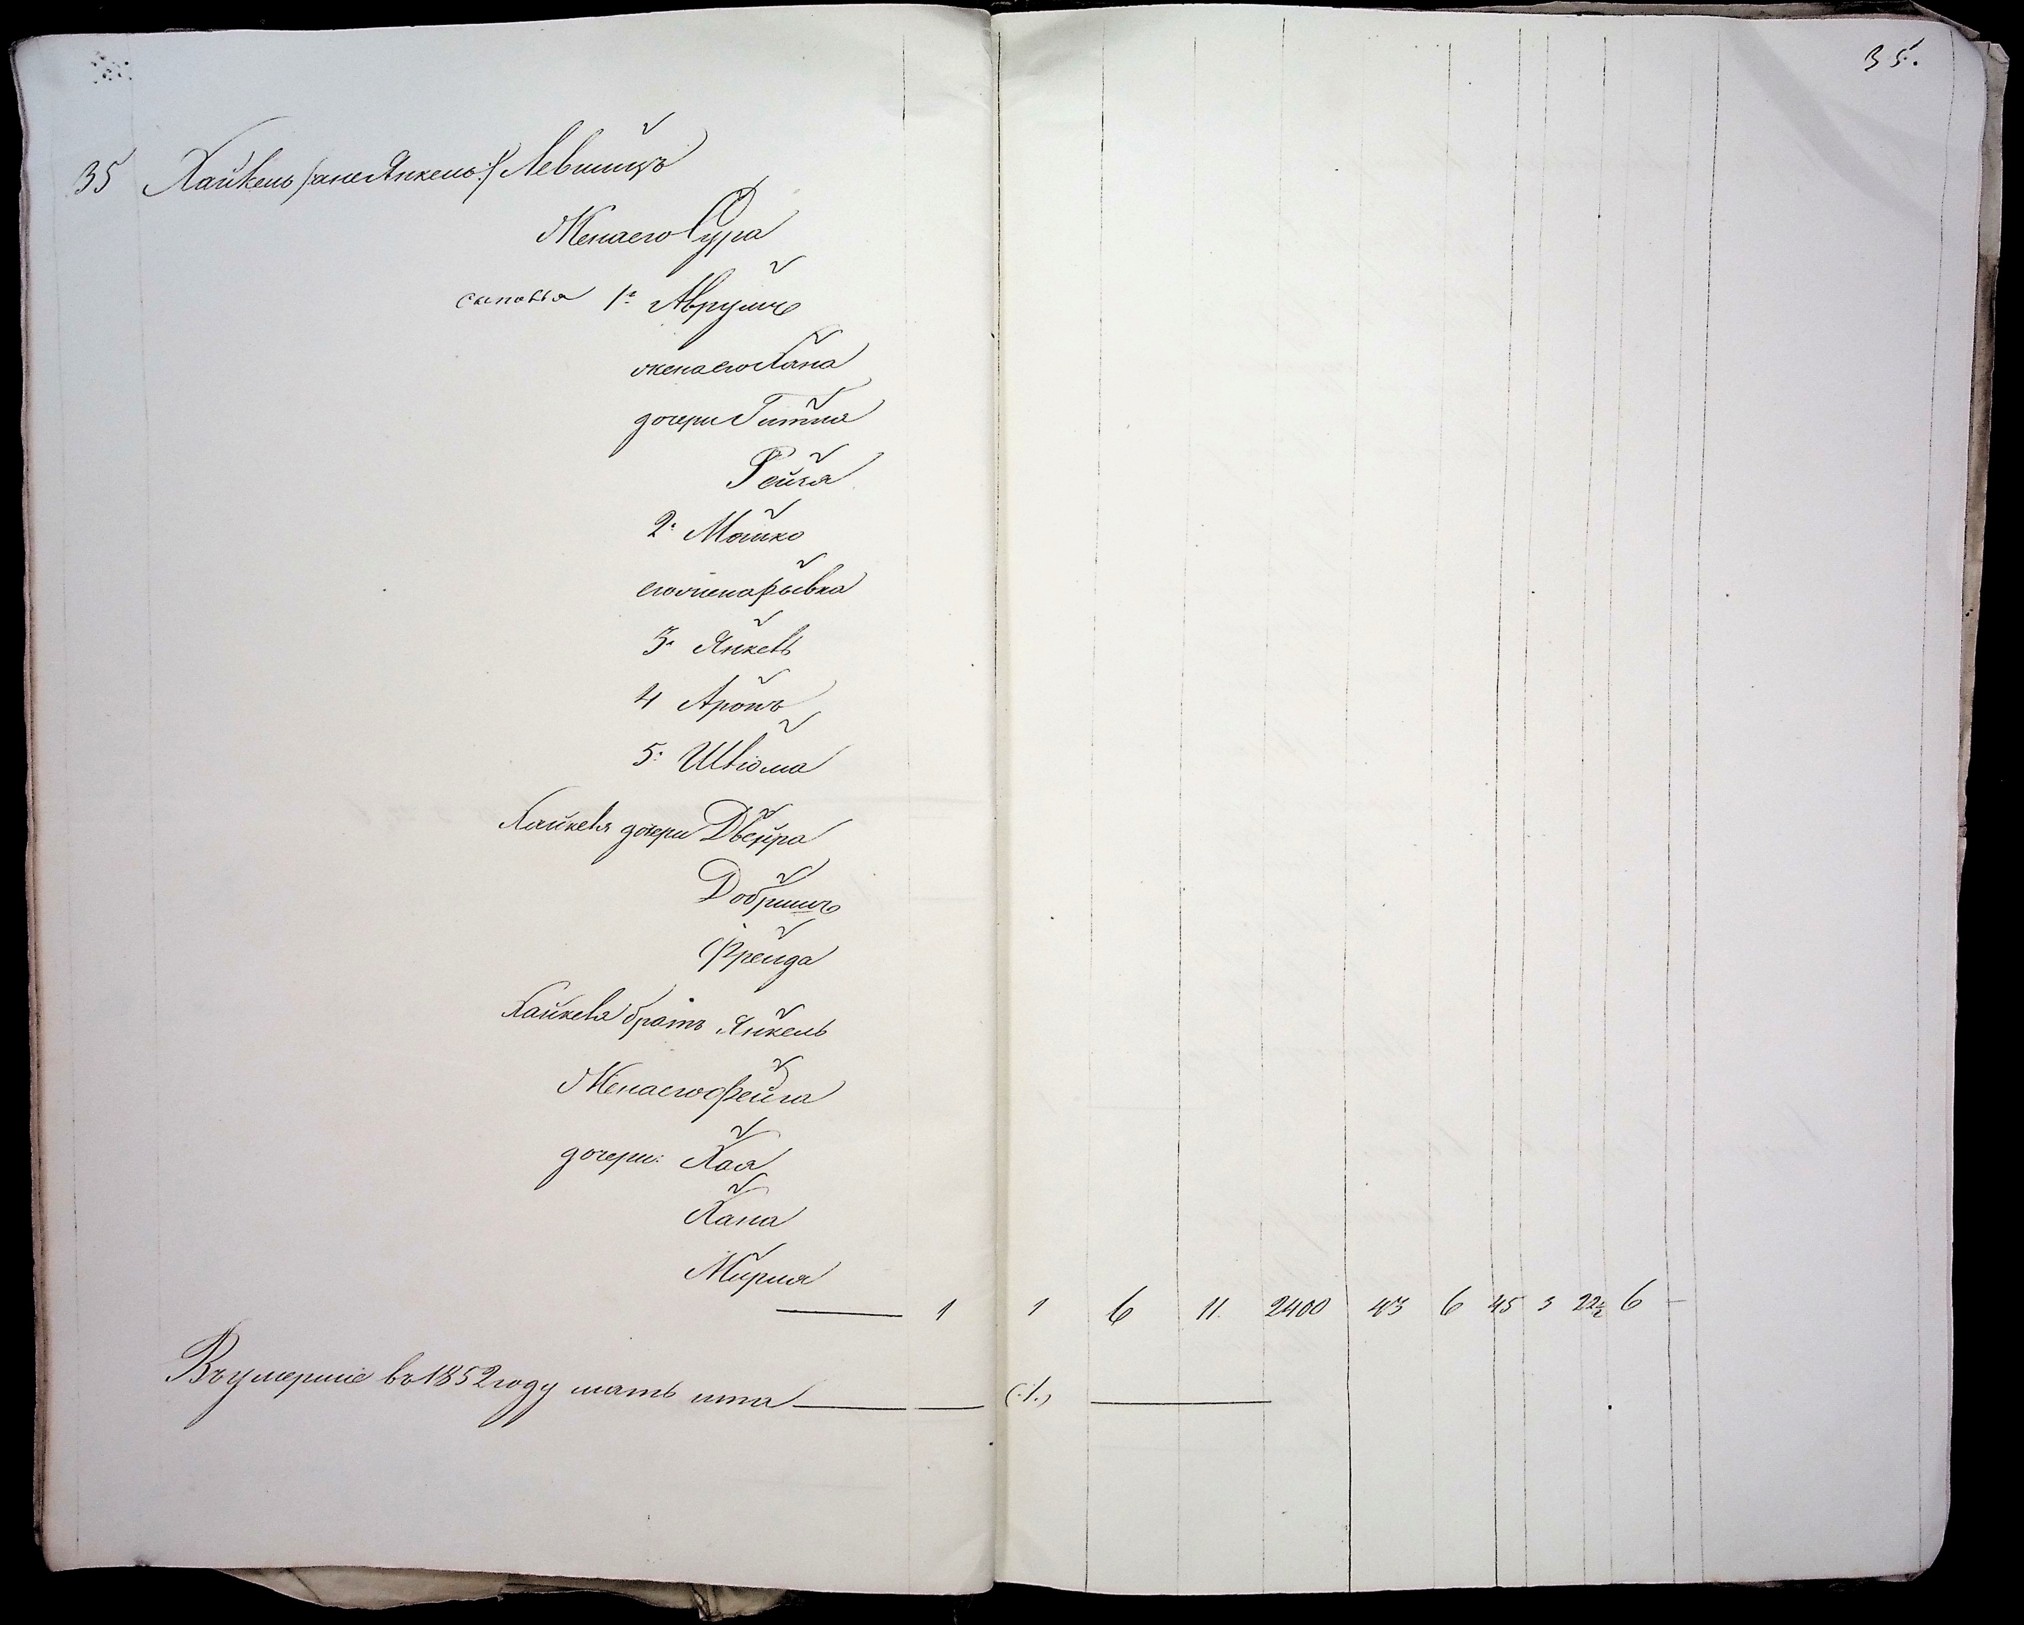 35.
35 Хайкель /: а не Янкель :/ Левшицъ
Жена его Сура
сыновья 1й Аврумъ
жена его Хана
дочери Гитля
Рейзя
2й Мошко
его жена Рывка
3й Янкель
4 Аронъ
5й Шліома
Хайкеля дочери Двейра
Добрышъ
Фрейда
Хайкеля братъ Янкель
Жена его Фейга
дочери: Хая
Хана
Мирля
1 1 6 11 2400 43 6 45 3 22½ 6 –
Въ умершіе въ 1852 году мать ита (:1:)